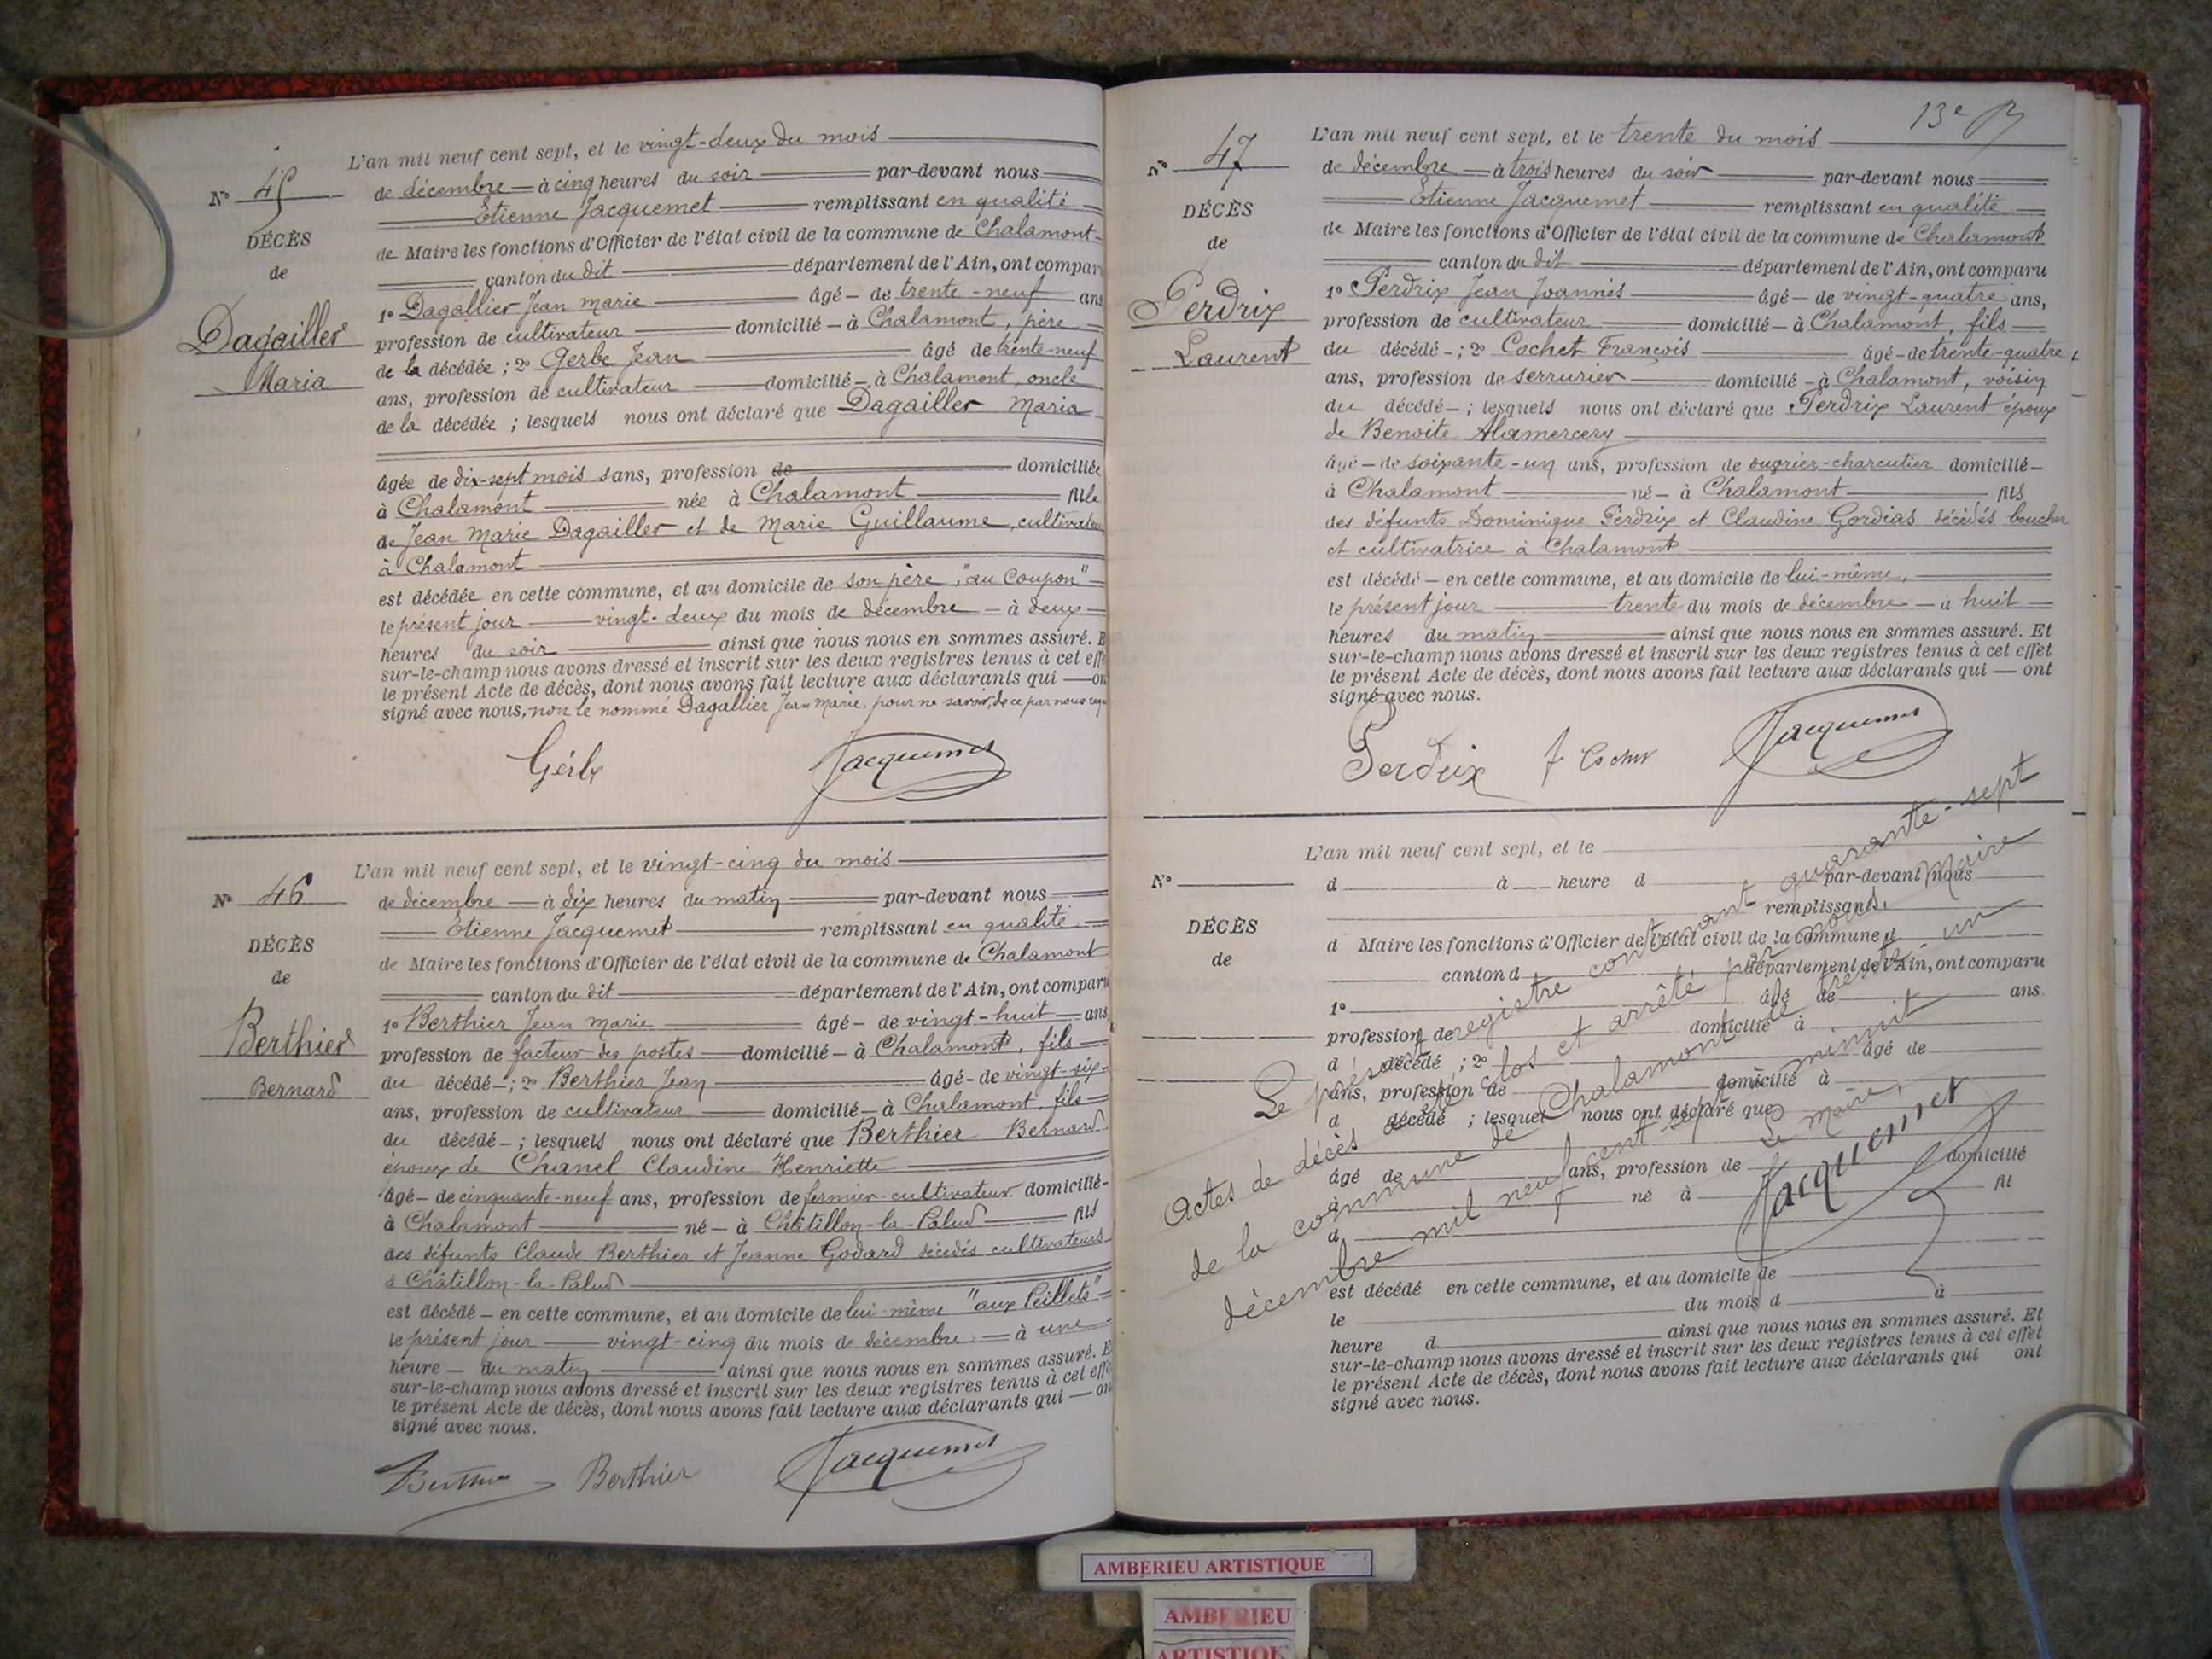 L'an mil neuf cent sept, et le vingt-deux du mois
de décembre à cinq heures du soir par-devant nous
Etienne Jacquemet remplissant en qualité
de Maire les fonctions d'Officier de l'état civil de la commune de Chalamont
canton du dit département de l'Ain, ont compar
1º Dagallier Jean Marie âgé de trente-neuf ans
profession de cultivateur domicilié à Chalamont, père
de la décédée ; 2º Gerbe Jean âgé de trente-neuf
ans, profession de cultivateur domicilié à Chalamont, oncle
de la décédée ; lesquels nous ont déclaré que Dagailler Maria
âgée de dix-sept mois sans, profession de domiciliée
à Chalamont née à Chalamont fille
de Jean Marie Dagailler et de Marie Guillaume, cultivateu
à Chalamont
est décédée en cette commune, et au domicile de son père, "au Coupon"
le présent jour vingt-deux du mois de décembre à deux
heures du soir ainsi que nous nous en sommes assuré. E
sur-le-champ nous avons dressé et inscrit sur les deux registres tenus à cet effe
le présent Acte de décès, dont nous avons fait lecture aux déclarants qui on
signé avec nous, non le nommé Dagallier Jean Marie, pour ne savoir, de ce par nous requ
Nº 45
DÉCÈS
de
Dagailler
Maria
Gerbe Jacquemet
L'an mil neuf cent sept, et le vingt-cinq du mois
de décembre à dix heures du matin par-devant nous
Etienne Jacquemet remplissant en qualité
de Maire les fonctions d'Officier de l'état civil de la commune de Chalamont
canton du dit département de l'Ain, ont comparu
1º Berthier Jean Marie âgé de vingt-huit ans
profession de facteur des postes domicilié à Chalamont, fils
du décédé ; 2º Berthier Jean âgé de vingt-six
ans, profession de cultivateur domicilié à Chalamont, fils
du décédé ; lesquels nous ont déclaré que Berthier Bernard
époux de Chanel Claudine Henriette
âgé de cinquante-neuf ans, profession de fermier-cultivateur domicilié
à Chalamont né à Châtillon-la-Palud fils
des défunts Claude Berthier et Jeanne Godard décédés cultivateurs
à Châtillon-la-Palud
est décédé en cette commune, et au domicile de lui-même "aux Peillets"
le présent jour vingt-cinq du mois de décembre à une
heure du matin ainsi que nous nous en sommes assuré. E
sur-le-champ nous avons dressé et inscrit sur les deux registres tenus à cet effe
le présent Acte de décès, dont nous avons fait lecture aux déclarants qui on
signé avec nous.
Nº 46
DÉCÈS
de
Berthier
Bernard
Berthier Berthier Jacquemet
13e
L'an mil neuf cent sept, et le trente du mois
de décembre à trois heures du soir par-devant nous
Etienne Jacquemet remplissant en qualité
de Maire les fonctions d'Officier de l'état civil de la commune de Chalamont
canton du dit département de l'Ain, ont comparu
1º Perdrix Jean Joannès âgé de vingt-quatre ans,
profession de cultivateur domicilié à Chalamont, fils
du décédé ; 2º Cochet François âgé de trente-quatre
ans, profession de serrurier domicilié à Chalamont, voisin
du décédé ; lesquels nous ont déclaré que Perdrix Laurent époux
de Benoite Alamercery
âgé de soixante-un ans, profession de ouvrier-charcutier domicilié
à Chalamont né à Chalamont fils
des défunts Dominique Perdrix et Claudine Gordias décédés boucher
et cultivatrice à Chalamont
est décédé en cette commune, et au domicile de lui-même,
le présent jour trente du mois de décembre à huit
heures du matin ainsi que nous nous en sommes assuré. Et
sur-le-champ nous avons dressé et inscrit sur les deux registres tenus à cet effet
le présent Acte de décès, dont nous avons fait lecture aux déclarants qui ont
signé avec nous.
Nº 47
DÉCÈS
de
Perdrix
Laurent
Perdrix F. Cochet Jacquemet
L'an mil neuf cent sept, et le
d à heure d par-devant nous
remplissant
d Maire les fonctions d'Officier de l'état civil de la commune d
canton d département de l'Ain, ont comparu
1º âgé de ans
profession de domicilié à
d décédé ; 2º âgé de
ans, profession de domicilié à
d décédé ; lesquel nous ont déclaré que
âgé de ans, profession de domicilié
à né à fil
d
est décédé en cette commune, et au domicile de
le du mois d à
heure d ainsi que nous nous en sommes assuré. Et
sur-le-champ nous avons dressé et inscrit sur les deux registres tenus à cet effet
le présent Acte de décès, dont nous avons fait lecture aux déclarants qui ont
signé avec nous.
Nº
DÉCÈS
de
Le présent registre contenant quarante-sept
Actes de décès a été clos et arrêté par nous, Maire
de la commune de Chalamont le trente-un
décembre mil neuf cent sept à minuit
Le Maire,
Jacquemet
AMBERIEU ARTISTIQUE
AMBERIEU
ARTISTIQU